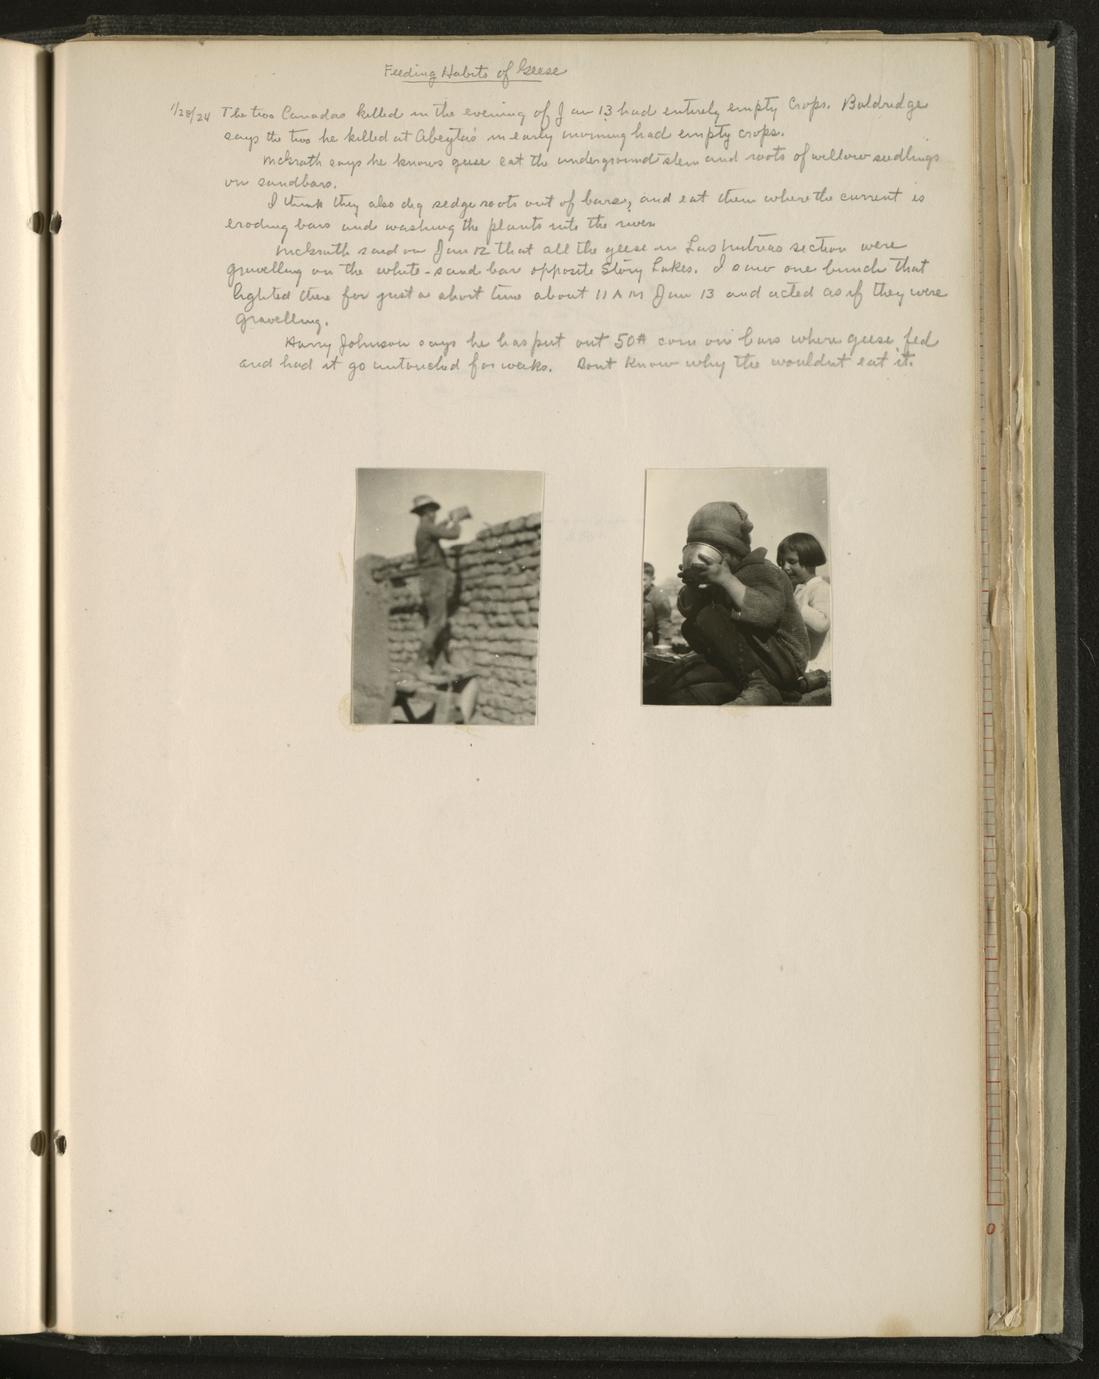 Feeding Habits of Geese
1/28/24 The two Canadas killed in the evening of Jan 13 had entirely empty crops. Baldridge
says the two he killed at Abeyta's in early morning had empty crops.
McGrath says he knows geese eat the underground stem and roots of willow seedlings
on sandbars.
I think they also dig sedge roots out of bars, and eat them where the current is
eroding bars and washing the plants into the river
McGrath said on Jan 12 that all the geese in Las section were
gravelling on the white-sand bar opposite Story Lakes. I saw one bunch that
lighted there for just a short time about 11 AM Jan 13 and acted as if they were
gravelling.
Harry Johnson says he has put out 50# corn on bars where geese fed
and had it go untouched for weeks. Dont know why the wouldnt eat it.
0